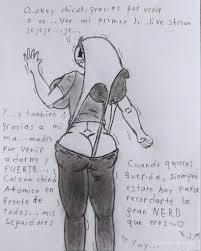 O..okey chicos, gracias por venir
a ve... Ver mi primer )...live strean
jejeje...je..
Y...y también
gracias a mi
ma...madre
por venir
a darme y
FUERTE...
Calzon chino
Atomico en
frente de
todos... mis
seguidores
Cuando quieras
querida, siempre
estare hay para
recordarte la
gran NERD
que eres
Yay...